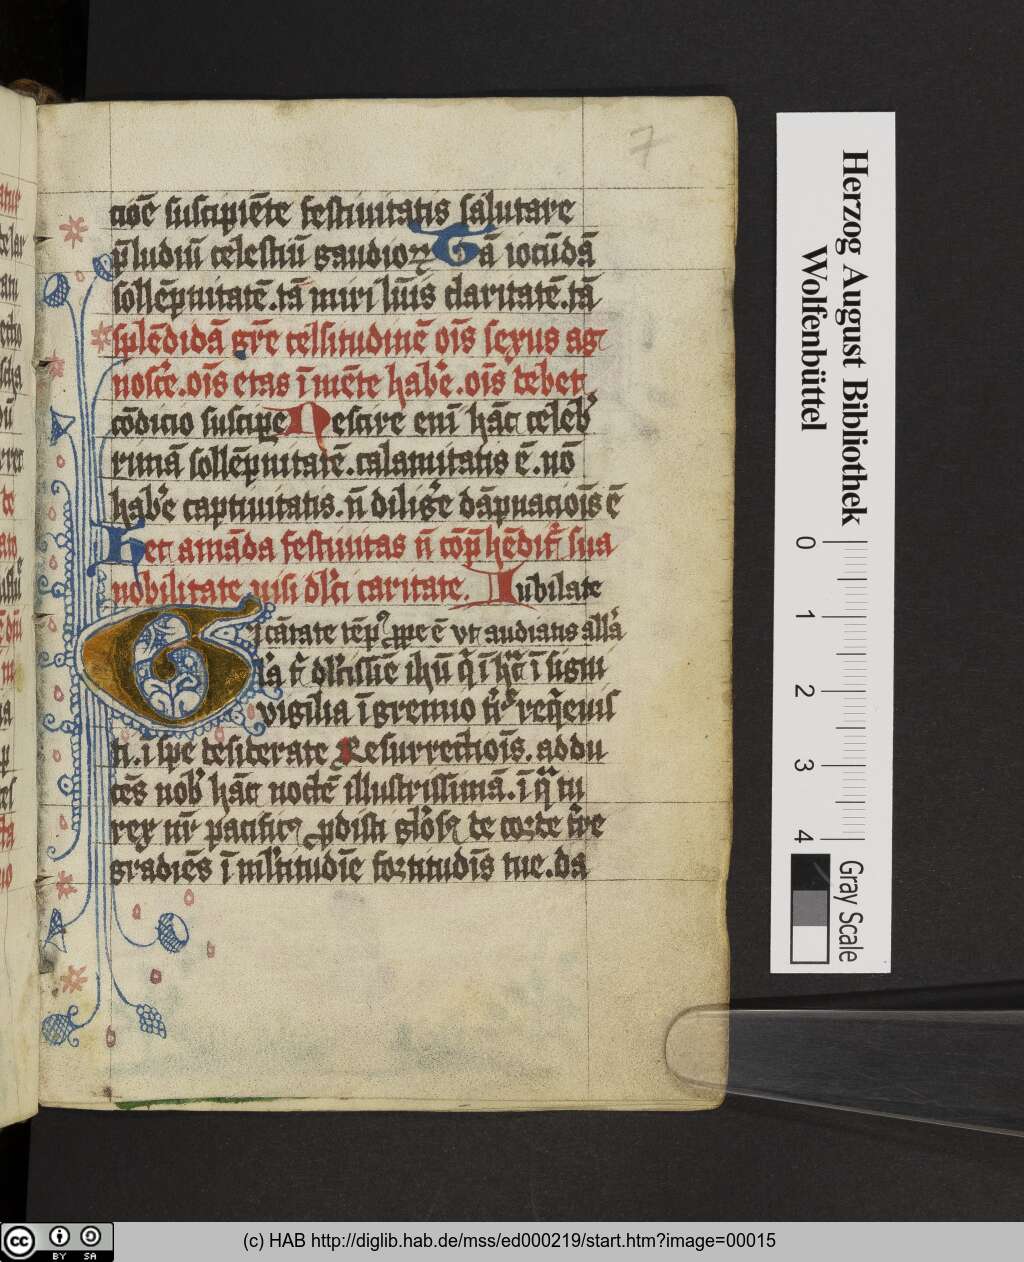 7
cioē suscipiēte festiuitatis salutare
p̄ludiū celestiū gaudioꝝ Tā iocūdā
sollēpnitatē. tā miri lūis claritatē. tā
splēdidā gr̄e celsitudinē oīs sexus ag
nosce. oīs etas ī mēte habe. oīs debet
cōdicio suscipe Nescire enī hāc celeb
rimā sollēpnitatē. calamitatis ē. nō
habe captiuitatis. ñ dilige dāpnaciois ē
Hec amāda festiuitas ñ cōp̄hēdit sua
nobilitate nisi dlci caritate. Iubilate
cātate vt audiatis
dlcissīe ihū ī ī signi
vigilia ī gremio
ti. ī spe desiderate Resurrectiois. addu
cēs nob hāc noctē illustrissimā. ī q̄ tu
rex nr̄ pacificꝰ ꝓdisti de corde
gradiēs ī mltitudīe fortitudīs tue. da
Herzog August Bibliothek
Wolfenbüttel
0 1 2 3 4
Gray Scale
cc BY SA
(c) HAB http://diglib.hab.de/mss/ed000219/start.htm?image=00015